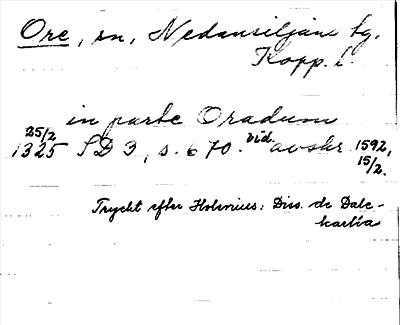 Ore, sn, Nedansiljans tg.
Kopp. l.
in parte Oradum
25/2
1325 SD 3, s. 670. vid. avskr. 1592,
15/2.
Tryckt efter Holenius: Diss. de Dale-
karlia